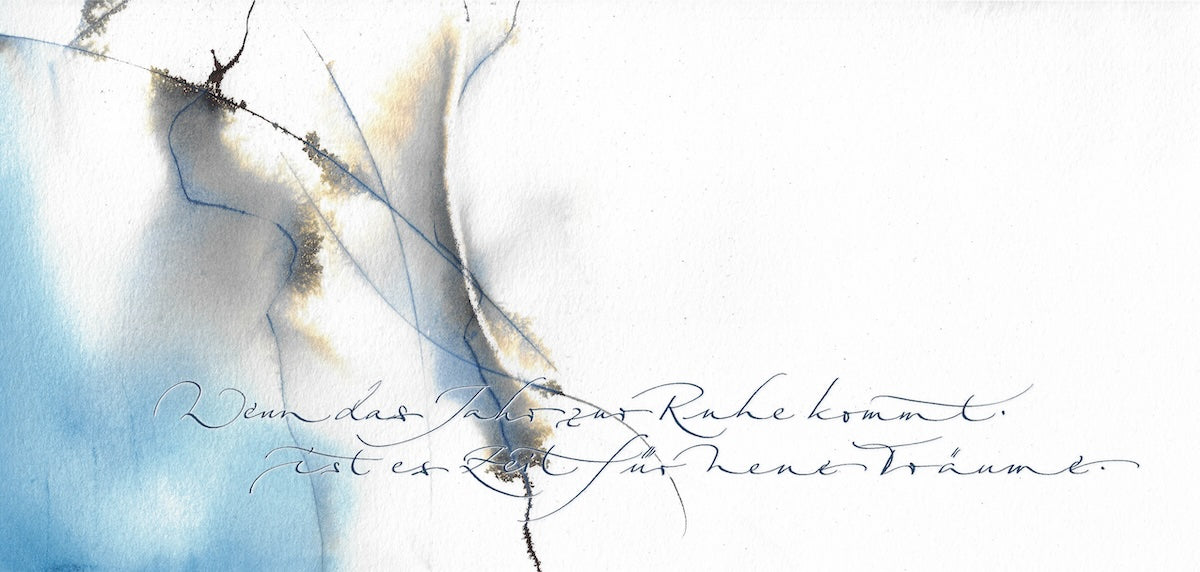 Wenn das Jahr zur Ruhe kommt.
ist es Zeit für Neue Träume.